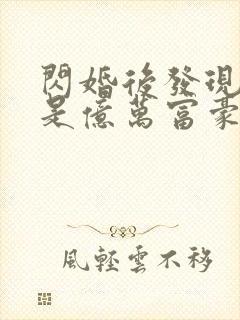 閃婚後發現
是億萬富豪
風輕雲不移